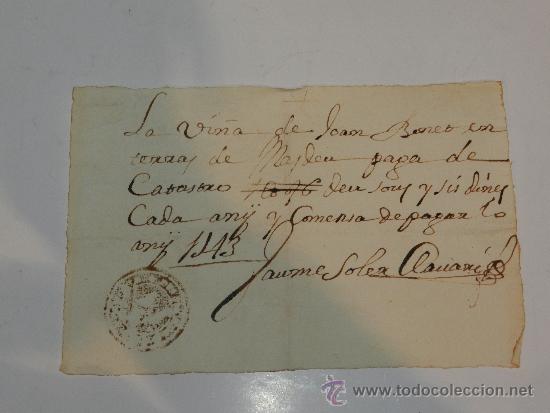 La Viña de Joan Bonet en
terras de Masdeu paga de
Catastro deu sous y sis dines
Cada any y Comensa de pagar lo
any 1743
Jaume Soler Clavari
todocoleccion
© www.todocoleccion.net